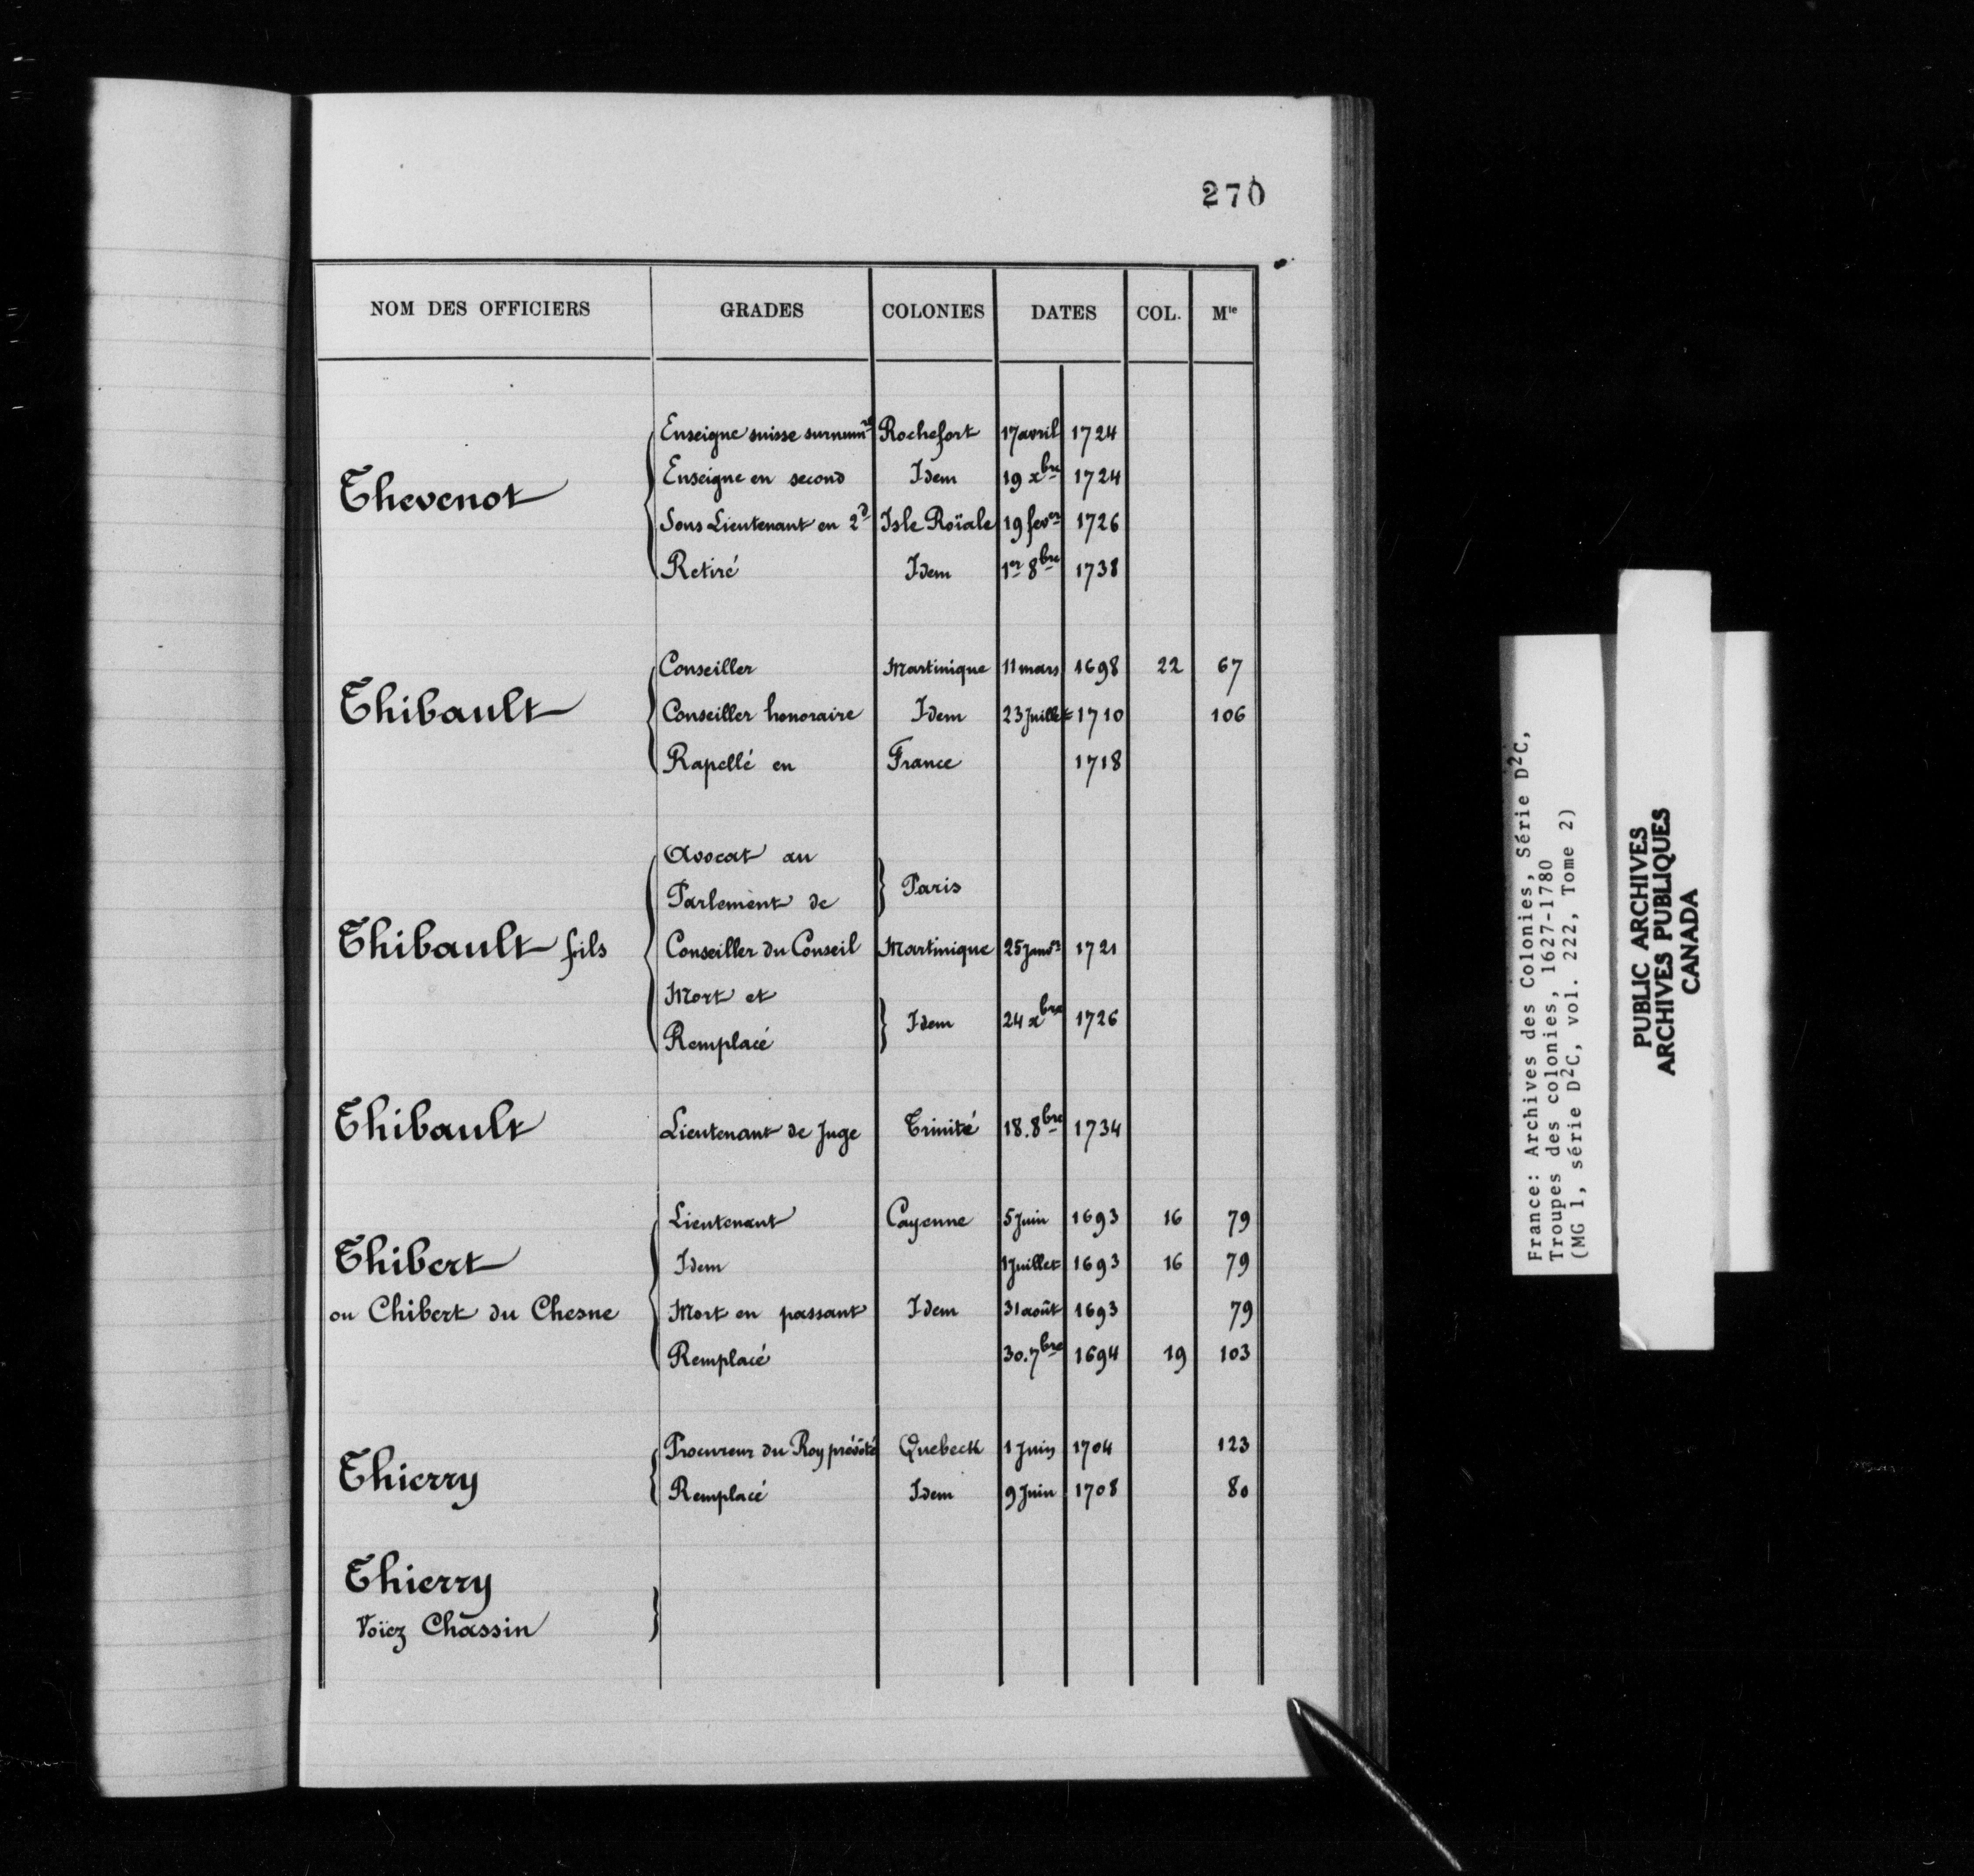 270
NOM DES OFFICIERS GRADES COLONIES DATES COL. Mle
Thevenot
Enseigne suisse surnumre Rochefort 17 avril 1724
Enseigne en second Idem 19 xbre 1724
Sous Lieutenant en 2d Isle Roïale 19 fevер 1726
Retiré Idem 1er 8bre 1738
Thibault
Conseiller Martinique 11 mars 1698 22 67
Conseiller honoraire Idem 23 Juillet 1710 106
Rapellé en France 1718
Thibault fils
Avocat au
Parlement de Paris
Conseiller du Conseil Martinique 25 Janvr 1721
Mort et
Remplacé Idem 24 xbre 1726
Thibault Lieutenant de Juge Trinité 18. 8bre 1734
Thibert
ou Chibert du Chesne
Lieutenant Cayenne 5 Juin 1693 16 79
Idem 1 Juillet 1693 16 79
Mort en passant Idem 31 août 1693 79
Remplacé 30. 7bre 1694 19 103
Thierry
Procureur du Roy prévôté Quebeck 1 Juin 1704 123
Remplacé Idem 9 Juin 1708 80
Thierry
Voïez Chassin
France: Archives des Colonies, Série D2C,
Troupes des colonies, 1627-1780
(MG 1, série D2C, vol. 222, Tome 2)
PUBLIC ARCHIVES
ARCHIVES PUBLIQUES
CANADA